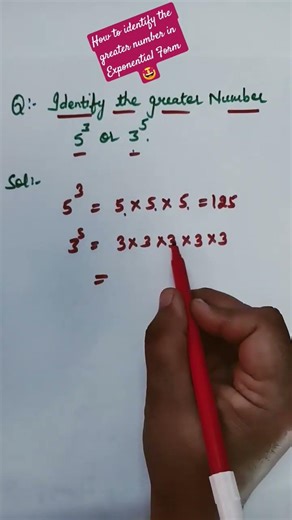 How to identify the
greater number in
Exponential Form
🤩
Q:- Identify the greater Number
5³ or 3⁵.
Sol:-
5³ = 5 × 5 × 5 = 125
3⁵ = 3 × 3 × 3 × 3 × 3
=